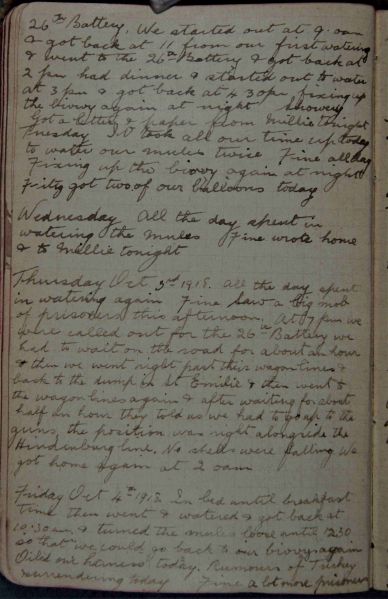 26th Battery. We started out at 9 am
& got back at 11 from our first watering
& went to the 26th Battery & got back at
2 pm had dinner & started out to water
at 3 pm & got back at 4 30 pm, fixing up
the bivvy again at night Showery
Got a letter & paper from Millie tonight
Tuesday It took all our time up today
to water our mules twice Fine all day
Fixing up the bivvy again at night
Fritz got two of our balloons today
Wednesday All the day spent in
watering the mules Fine wrote home
& to Millie tonight
Thursday Oct 3rd 1918. All the day spent
in watering again Fine Saw a big mob
of prisoners this afternoon. At 7 pm we
were called out for the 26th Battery we
had to wait on the road for about an hour
& then we went right past their wagon lines &
back to the dump in St Emilie & then went to
the wagon lines again & after waiting for about
half an hour they told us we had to go up to the
guns, the position was right alongside the
Hindenburg line. No shells were falling We
got home again at 2 oam
Friday Oct 4th 1918 In bed until breakfast
time then went & watered & got back at
10.30 am & turned the mules loose until 1230
so that we could go back to our bivvys again
Oiled our harness today. Rumours of Turkey
surrendering today Fine a lot more prisoners